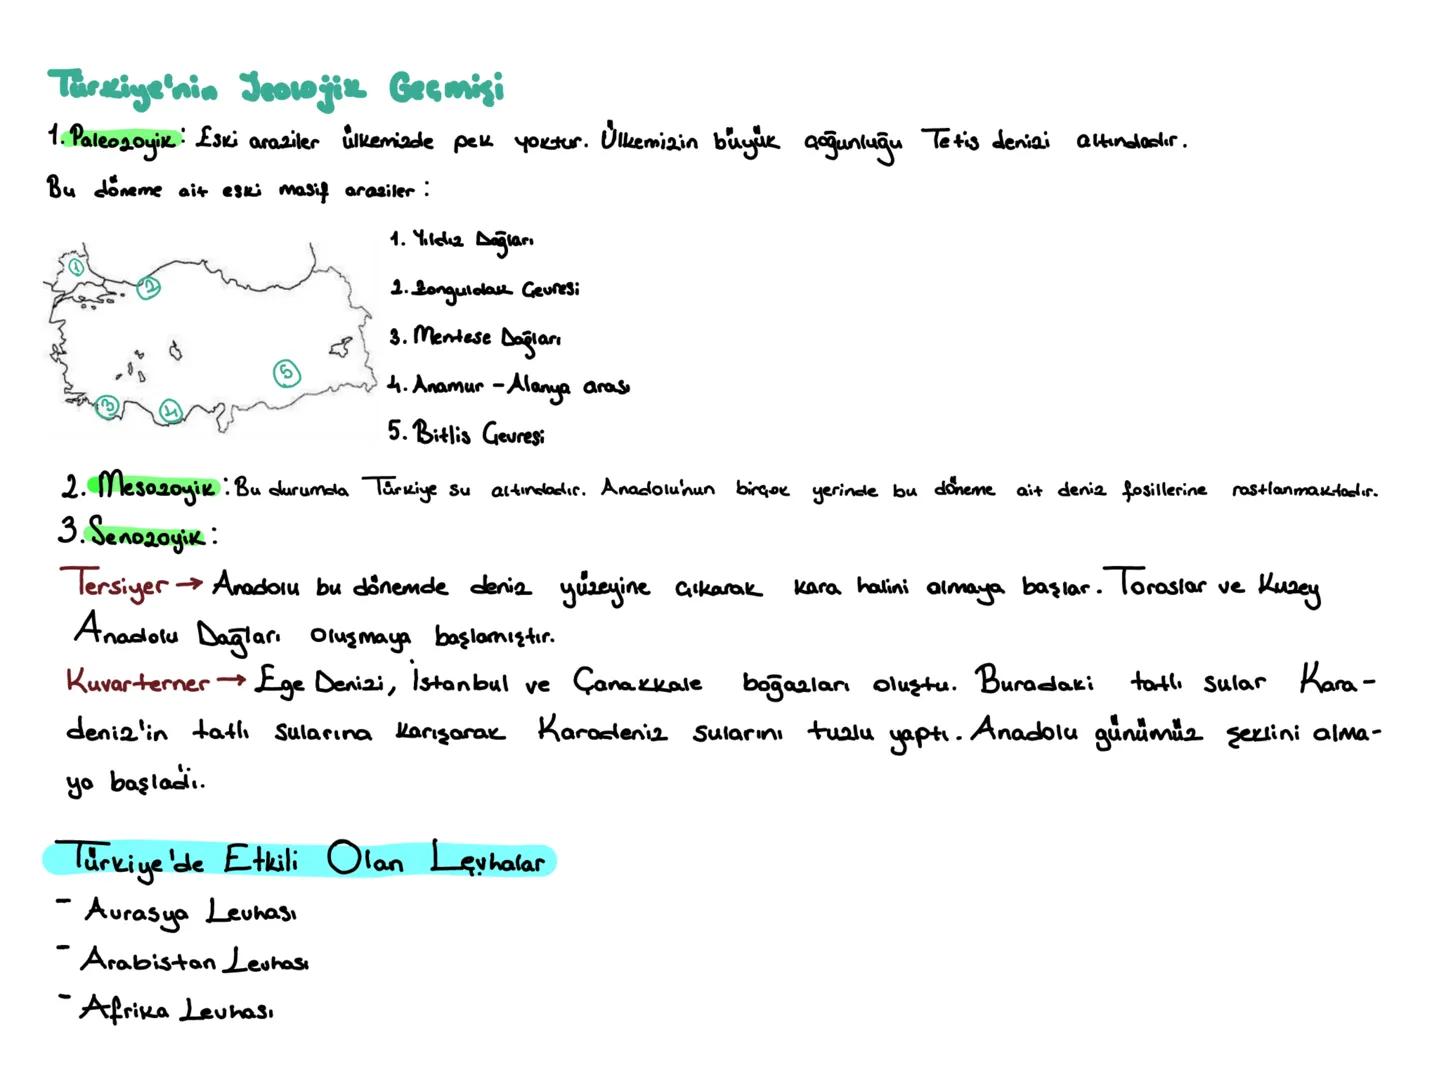 Türkiye'nin Jeolojik Geçmişi
1. Paleozoyik: Eski araziler ülkemizde pek yoktur. Ülkemizin büyük çoğunluğu Tetis denizi altındadır.
Bu döneme ait eski masif araziler:
1. Yıldız Dağları
2. Zonguldak Çevresi
3. Menteşe Dağları
4. Anamur - Alanya arası
5. Bitlis Çevresi
1
2
3
4
5
2. Mesozoyik: Bu durumda Türkiye su altındadır. Anadolu'nun birçok yerinde bu döneme ait deniz fosillerine rastlanmaktadır.
3. Senozoyik:
Tersiyer → Anadolu bu dönemde deniz yüzeyine çıkarak kara halini almaya başlar. Toroslar ve Kuzey
Anadolu Dağları oluşmaya başlamıştır.
Kuvarterner → Ege Denizi, İstanbul ve Çanakkale boğazları oluştu. Buradaki tatlı sular Kara-
deniz'in tatlı sularına karışarak Karadeniz sularını tuzlu yaptı. Anadolu günümüz şeklini alma-
ya başladı.
Türkiye'de Etkili Olan Levhalar
- Avrasya Levhası
- Arabistan Levhası
- Afrika Levhası